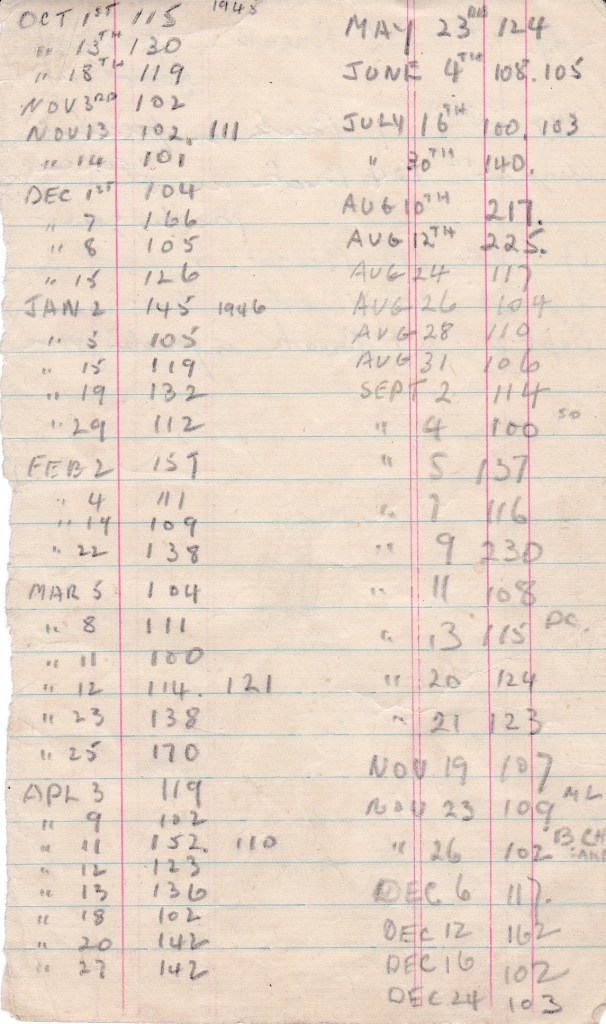 OCT 1ST 115 1945
" 13TH 130
" 18TH 119
NOV 3RD 102
NOV 13 102. 111
" 14 101
DEC 1ST 104
" 7 166
" 8 105
" 15 126
JAN 2 145 1946
" 5 105
" 15 119
" 19 132
" 29 112
FEB 2 157
" 4 111
" 14 109
" 22 138
MAR 5 104
" 8 111
" 11 100
" 12 114. 121
" 23 138
" 25 170
APL 3 119
" 9 102
" 11 152. 110
" 12 123
" 13 136
" 18 102
" 20 142
" 27 142
MAY 23RD 124
JUNE 4TH 108. 105
JULY 16TH 100, 103
" 30TH 140.
AUG 10TH 217.
AUG 12TH 225.
AUG 24 117
AUG 26 104
AUG 28 110
AUG 31 106
SEPT 2 114
" 4 100 SO
" 5 137
" 7 116
" 9 230
" 11 108
" 13 115 PC.
" 20 124
" 21 123
NOV 19 107
NOV 23 109 ML
" 26 102 B. CH
DEC 6 117.
DEC 12 162
DEC 16 102
DEC 24 103